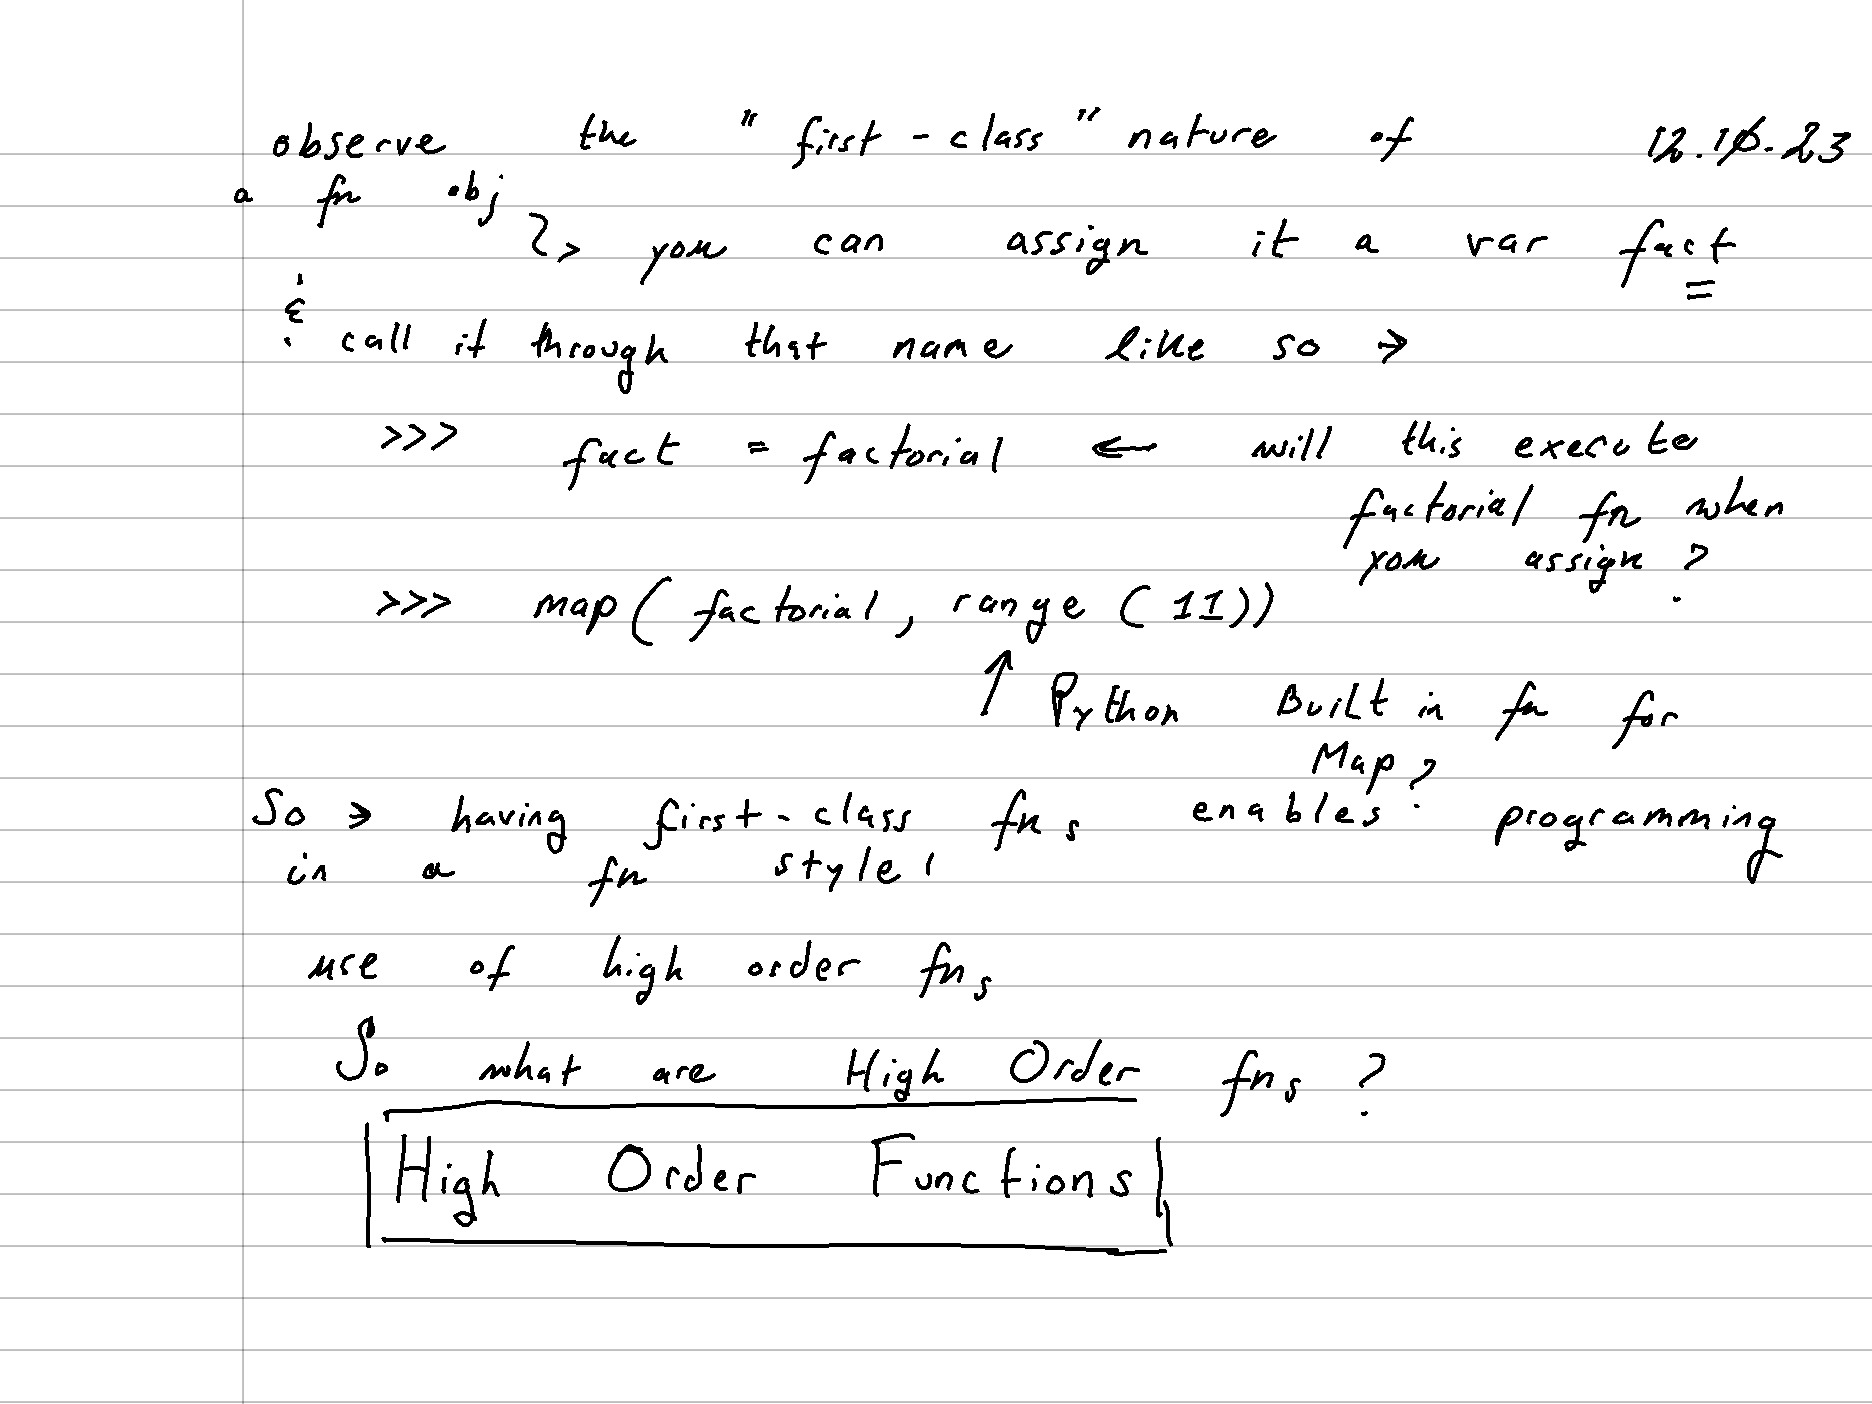 observe the "first-class" nature of 12.10.23
a fn obj
↳ you can assign it a var fact
& call it through that name like so →
>>> fact = factorial ← will this execute
factorial fn when
you assign?
>>> map( factorial, range (11))
↑ Python Built in fn for
Map?
So → having first-class fns enables programming
in a fn style!
use of high order fns
So what are High Order fns ?
High Order Functions